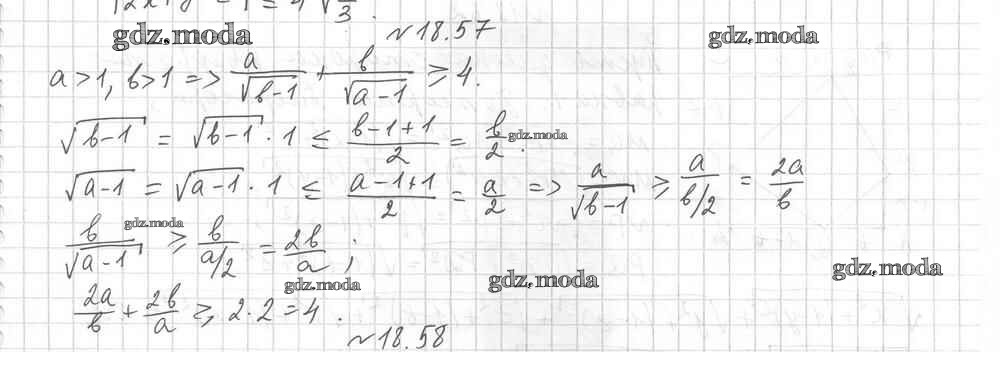 √3.
gdz.moda
№18.57
gdz.moda
a>1, b>1 => a/√(b-1) + b/√(a-1) ≥ 4.
√(b-1) = √(b-1)·1 ≤ (b-1+1)/2 = b/2. gdz.moda
√(a-1) = √(a-1)·1 ≤ (a-1+1)/2 = a/2 => a/√(b-1) ≥ a/(b/2) = 2a/b
gdz.moda
b/√(a-1) ≥ b/(a/2) = 2b/a ;
gdz.moda
gdz.moda
gdz.moda
2a/b + 2b/a ≥ 2·2=4.
№18.58